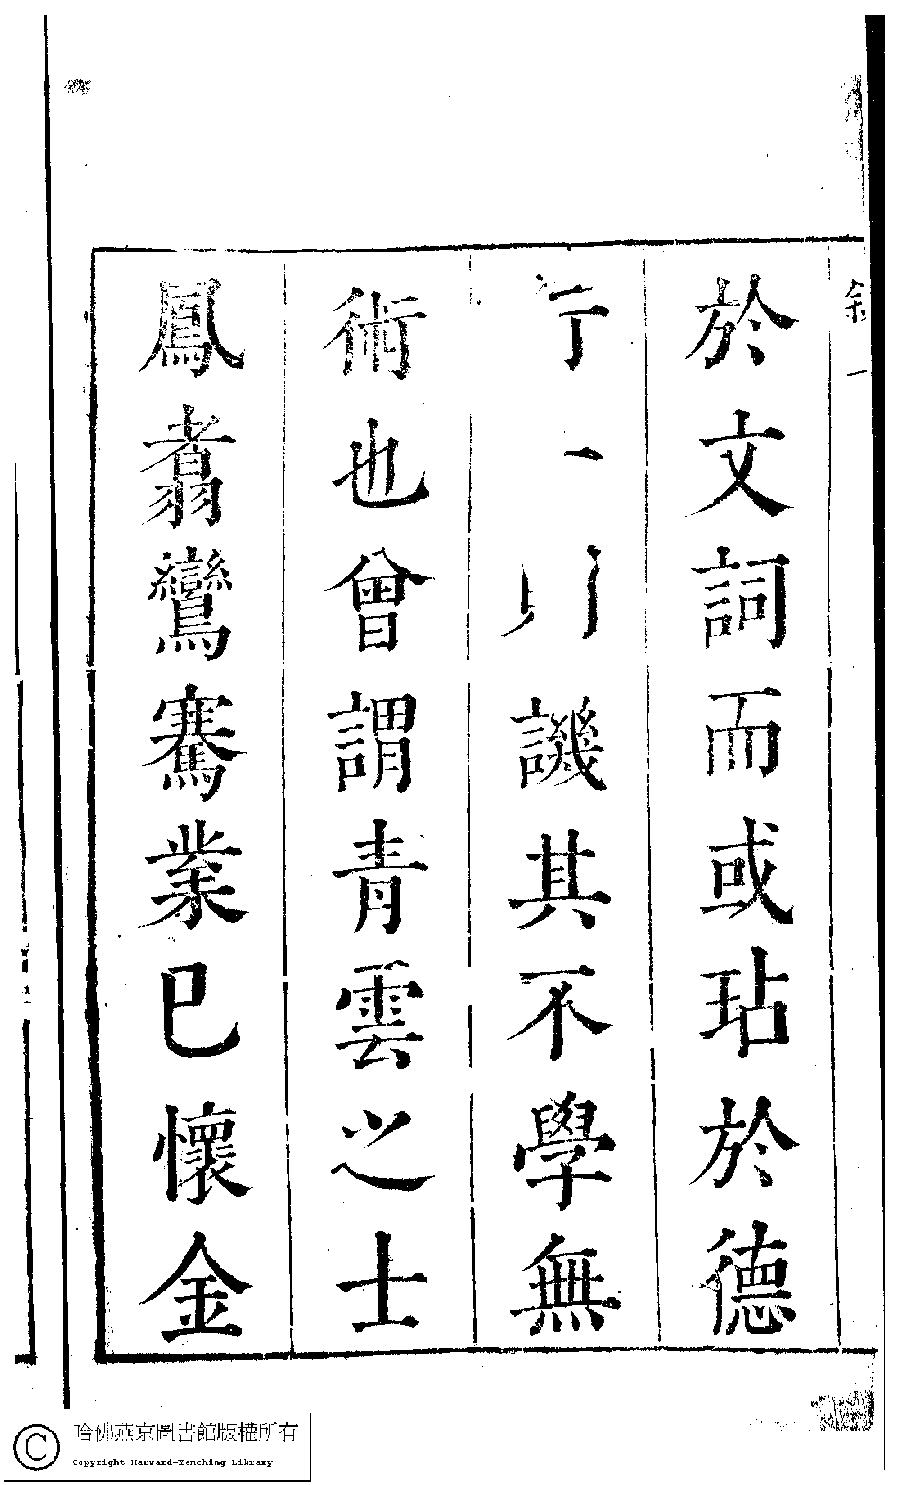 敘 一
於文詞而或玷於德
行譏其不學無
術也曾謂青雲之士
鳳翥鸞騫業已懷金
哈佛燕京圖書館版權所有
Copyright Harvard-Yenching Library